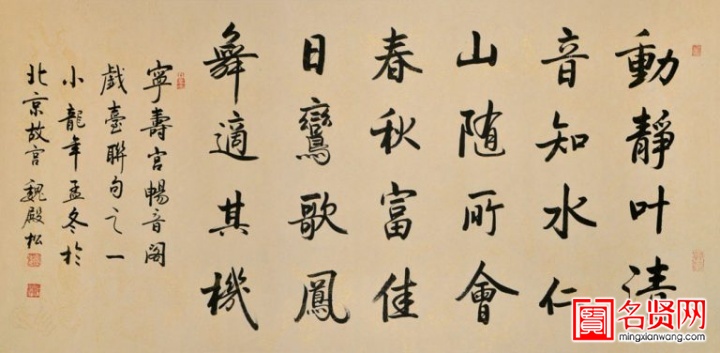 動靜叶清
音知水仁
山随所會
春秋富佳
日鸞歌鳳
舞適其機
寧壽宫暢音阁
戲臺聯句之一
小龍年孟冬於
北京故宫 魏殿松
名贤网
mingxianwang.com